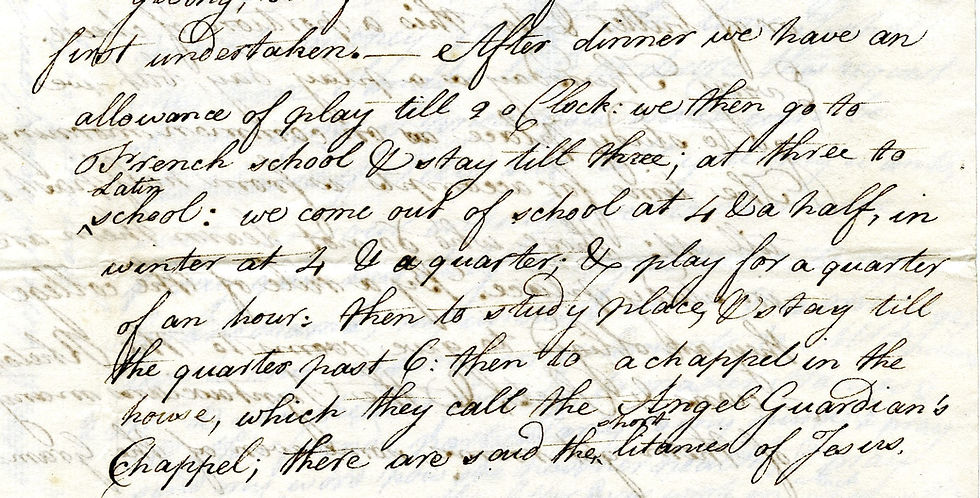 first undertaken.— After dinner we have an
allowance of play till 2 o Clock: we then go to
French school & stay till three; at three to
Latin
^school: we come out of school at 4 & a half, in
winter at 4 & a quarter; & play for a quarter
of an hour: then to study place, & stay till
the quarter past 6: then to a chappel in the
house, which they call the Angel Guardian's
short
Chappel; there are said the^ litanies of Jesus.